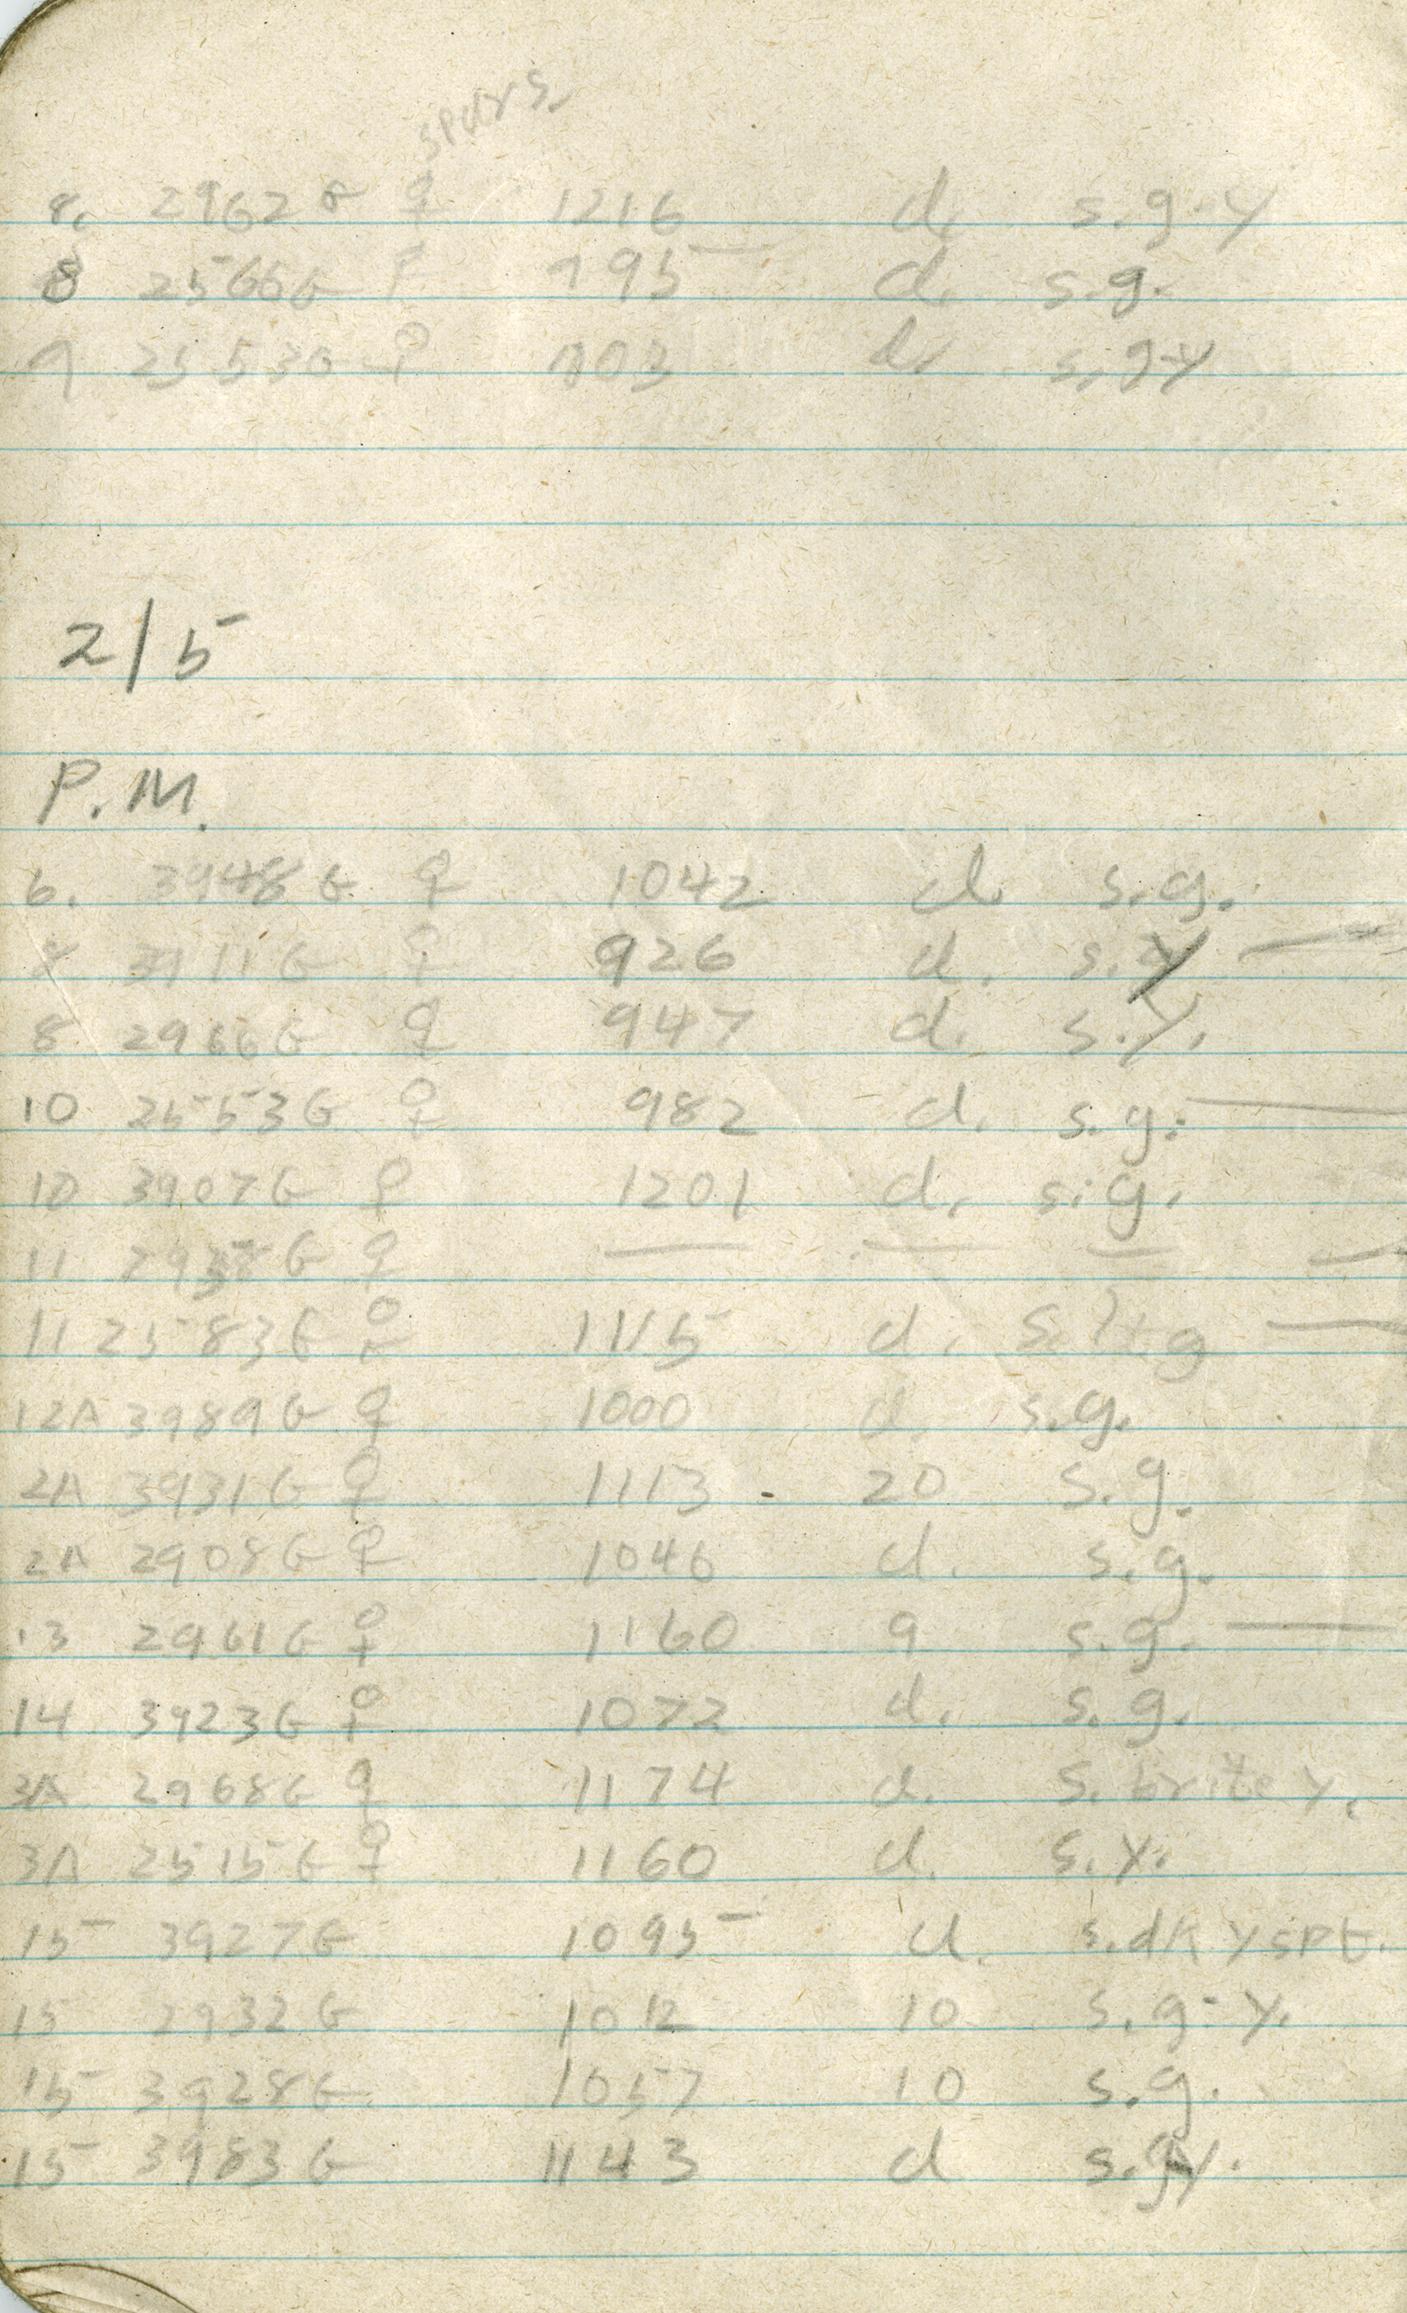 spurs
8. 2962G ♀ 1216 d. s.g-y
8 2566G ♀ 795 d. s.g.
9 2553G ♀ d. s.g-y
2/5
P.M.
6. 3948G ♀ 1042 d. s.g.
8 3911G ♀ 926 d. s.y —
8 2966G ♀ 947 d. s.y.
10 2553G ♀ 982 d. s.g. —
10 3907G ♀ 1201 d. s.g.
11 ♀ — — — —
11 2583G ♀ 1115 d. s. ltg —
12A 3989G ♀ 1000 d. s.g.
2A 3931G ♀ 1113 - 20 s.g.
2A 2908G ♀ 1046 d. s.g.
13 2961G ♀ 1160 9 s.g. —
14 3923G ♀ 1072 d. s.g.
3A 2968G ♀ 1174 d. s. brite y.
3A 2515G ♀ 1160 d. s.y.
15 3927G 1095 d. s.dk y spt.
15 2932G 1012 10 s.g-y.
15 3928G 1057 10 s.g.
15 3983G 1143 d s.gy.